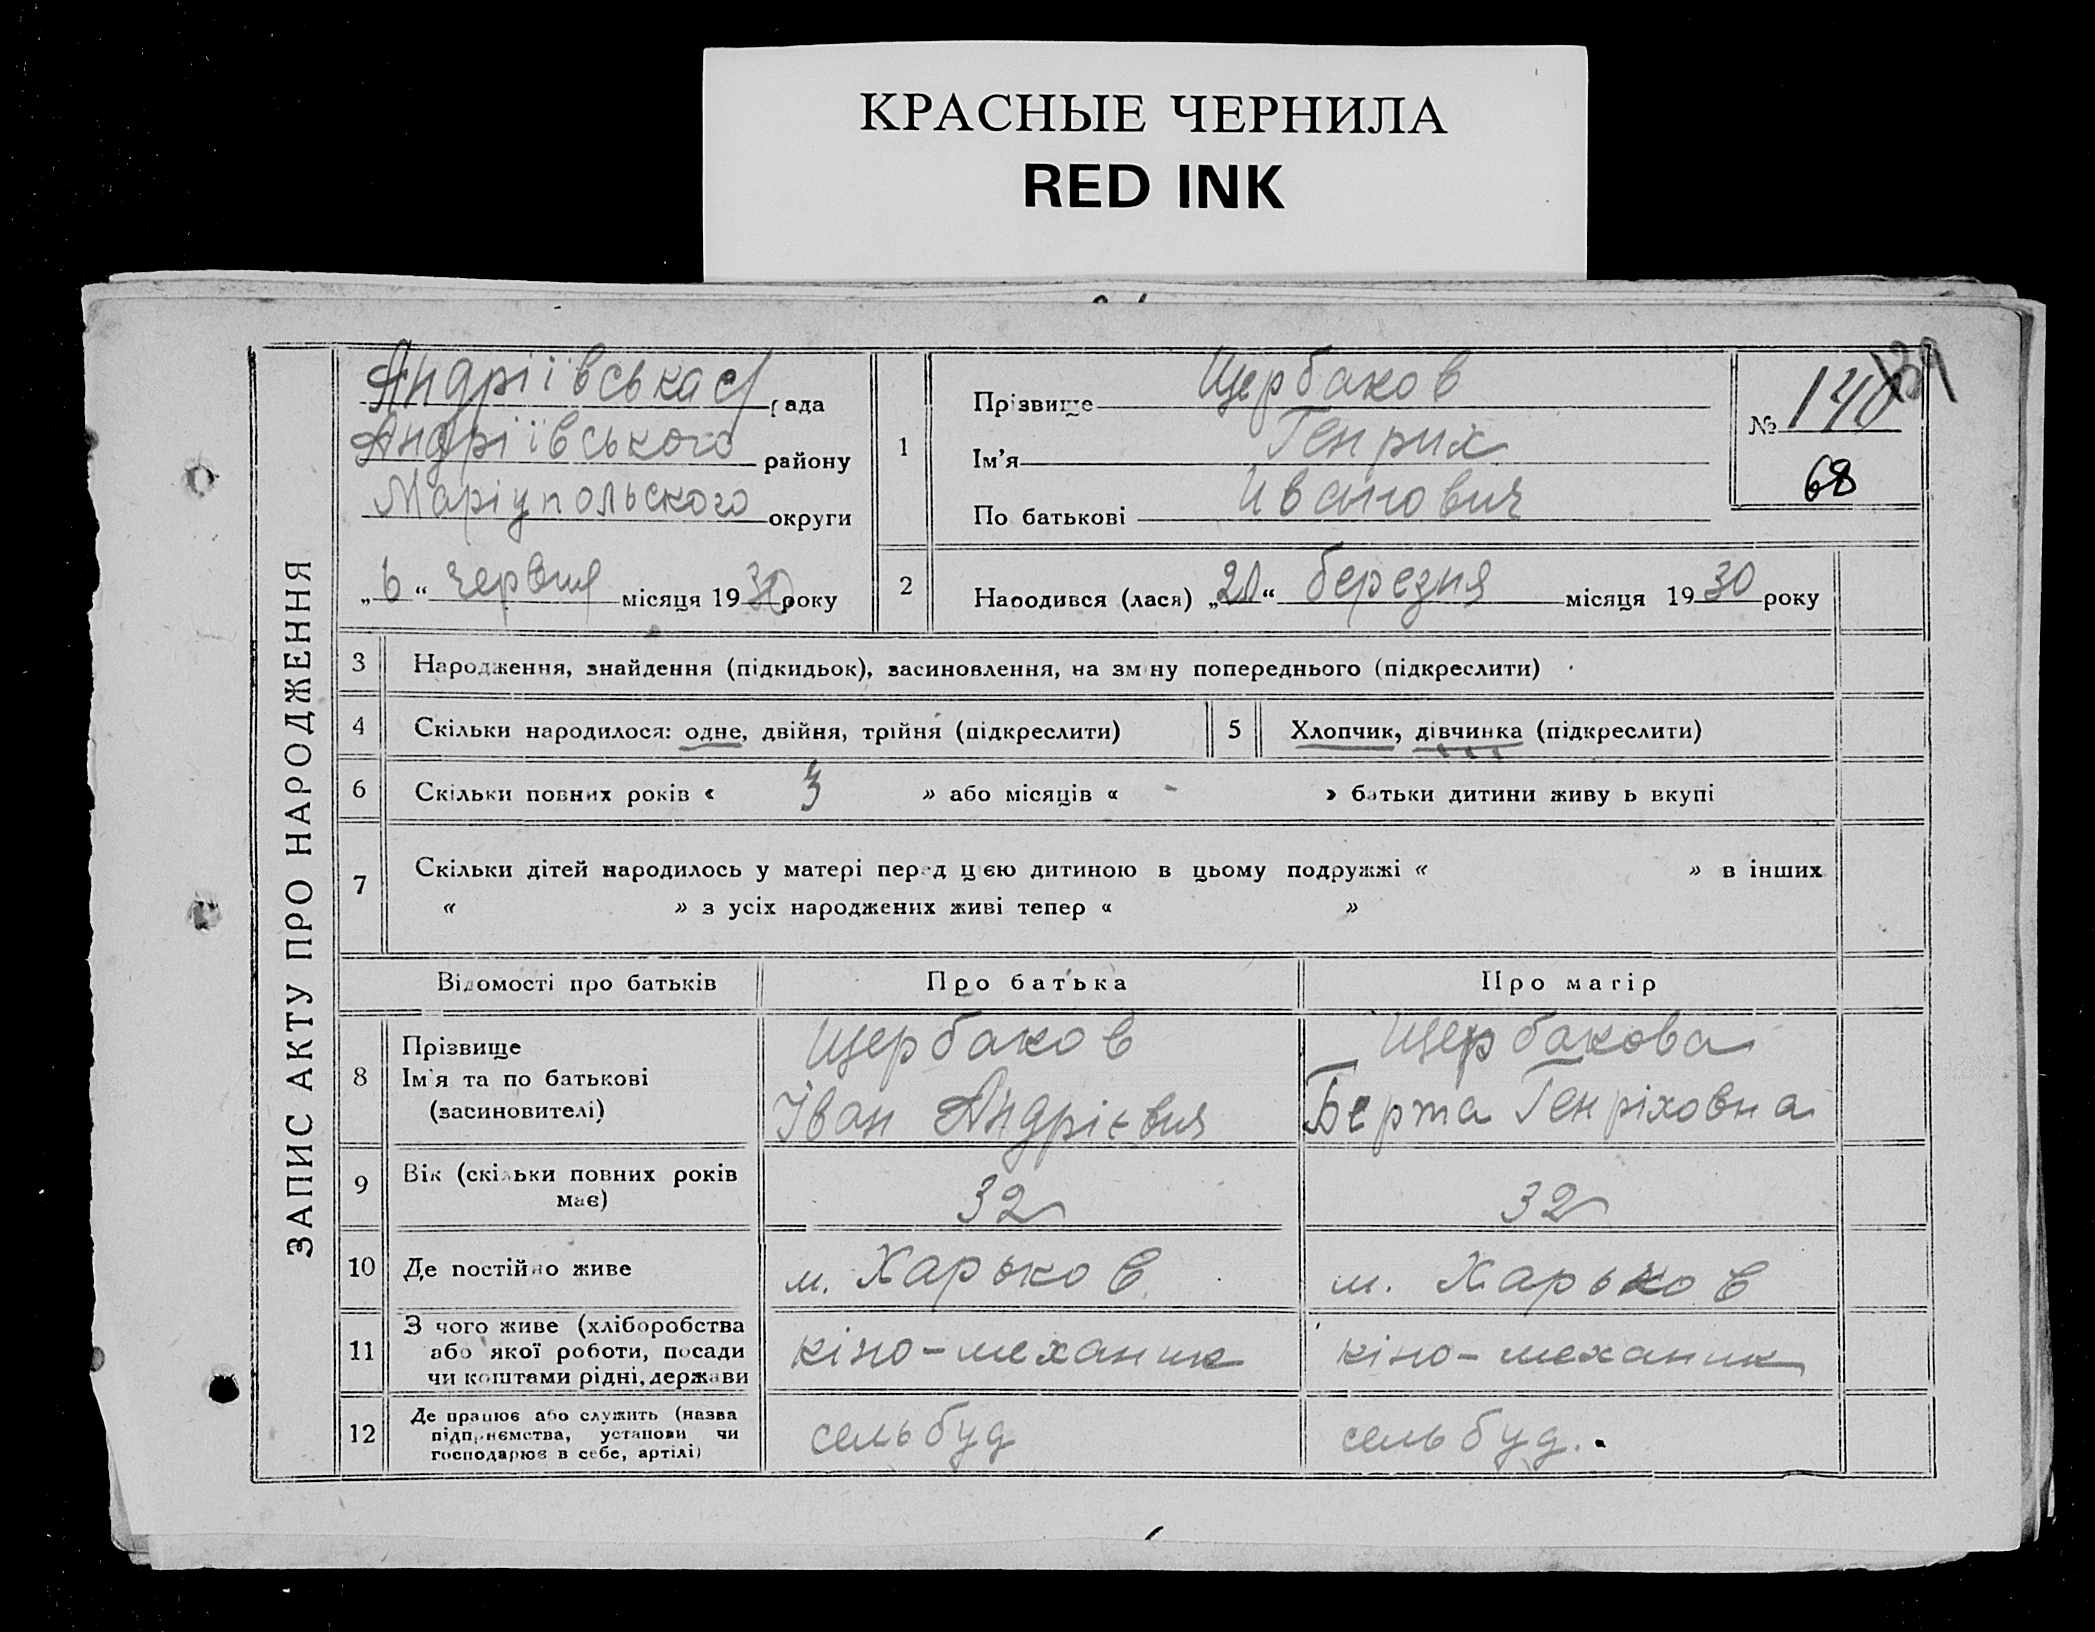 КРАСНЫЕ ЧЕРНИЛА
RED INK
ЗАПИС АКТУ ПРО НАРОДЖЕННЯ
Андріївська с/рада
Андріївського району
Маріупольского округи
„6“ червня місяця 1930 року
1
Прізвище Щербаков
Ім’я Генрих
По батькові Иванович
№ 140
139
68
2
Народився (лася) „20“ березня місяця 1930 року
3 Народження, знайдення (підкидьок), засиновлення, на зміну попереднього (підкреслити)
4 Скільки народилося: одне, двійня, трійня (підкреслити)
5 Хлопчик, дівчинка (підкреслити)
6 Скільки повних років « 3 » або місяців « - » батьки дитини живуть вкупі
7
Скільки дітей народилось у матері перед цією дитиною в цьому подружжі « » в інших
« » з усіх народжених живі тепер « »
Відомості про батьків Про батька Про матір
8
Прізвище
Ім’я та по батькові
(засиновителі)
Щербаков
Іван Андрієвич
Щербакова
Берта Генріховна
9
Вік (скільки повних років
має)
32
32
10 Де постійно живе м. Харьков м. Харьков
11
З чого живе (хліборобства
або якої роботи, посади
чи коштами рідні, держави
кіно-механик
кіно-механик
12
Де працює або служить (назва
підприємства, установи чи
господарює в себе, артілі)
сельбуд
сельбуд.